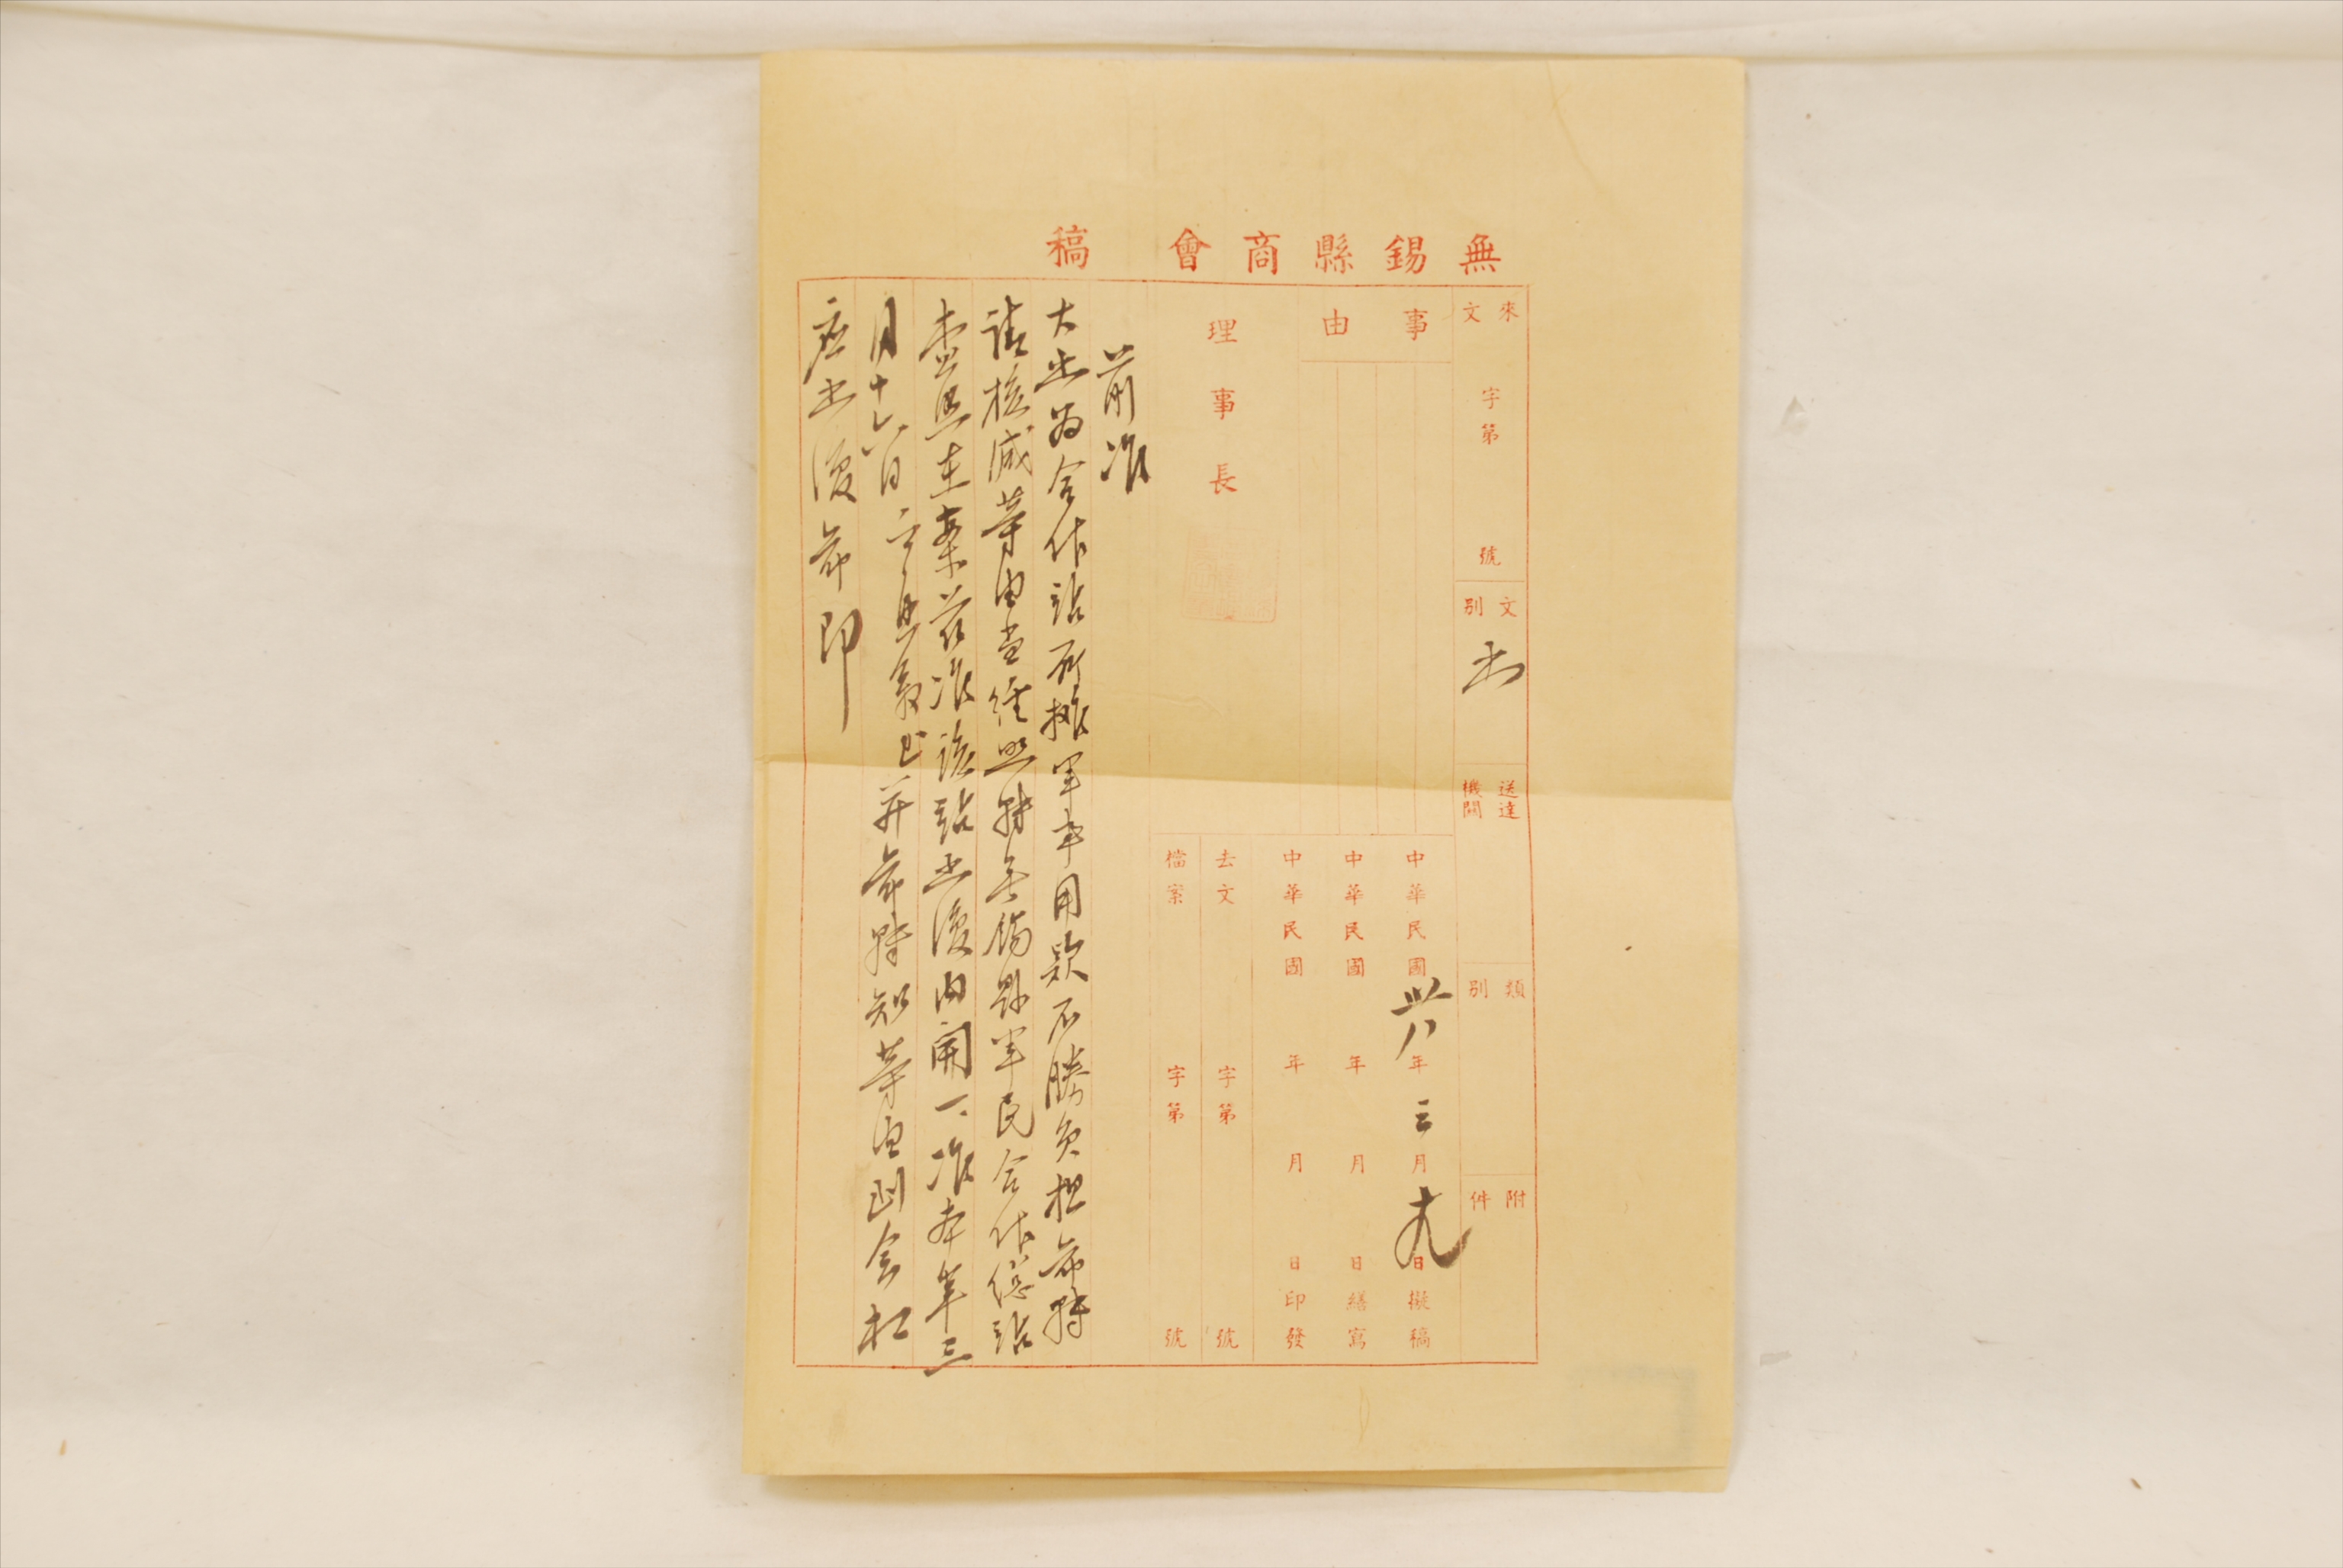 無錫縣商會 稿
來文 字第 號
文別 函
送達機關
類別
附件
事由
中華民國卅八年三月十九日擬稿
中華民國 年 月 日繕寫
中華民國 年 月 日印發
理事長
去文 字第 號
檔案 字第 號
前准
大函為合作站所攤軍事用款不勝負担希轉
請核减等由當經照轉無錫縣軍民合作總站
查照在案茲准該站函復内開一、准本年三
月十六日 并希轉知等由到會相
應函復希即